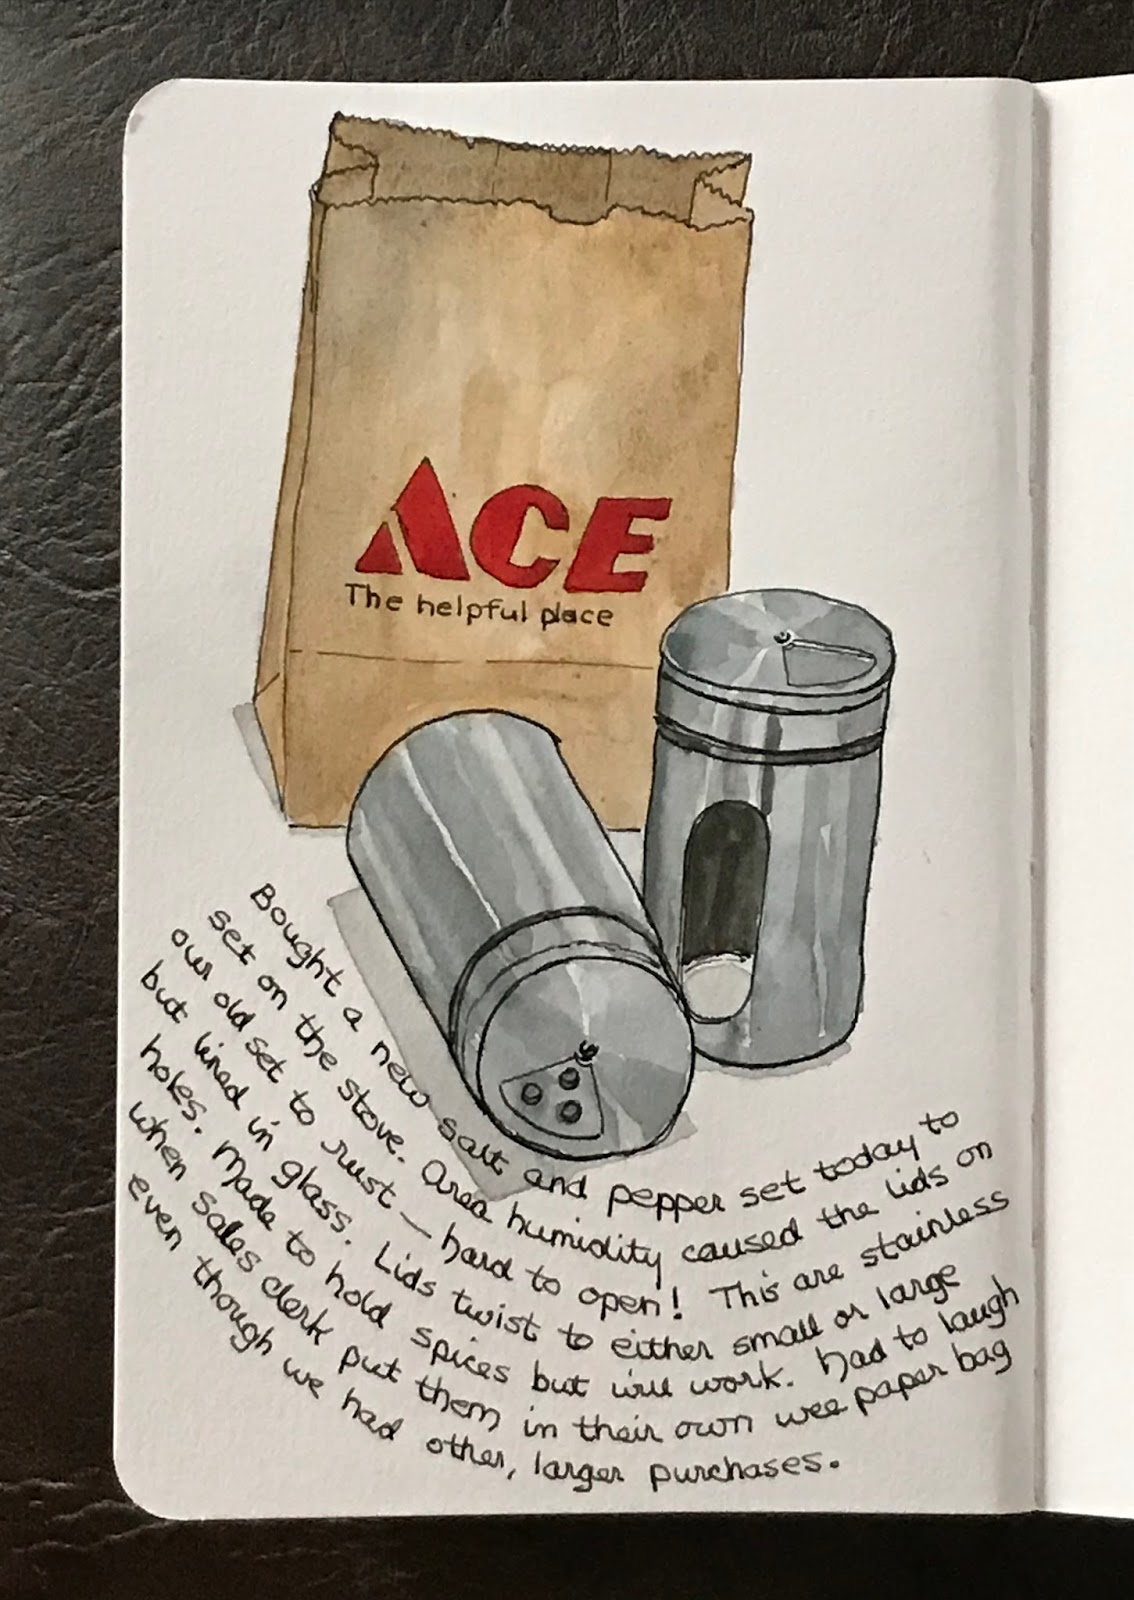 ACE
The helpful place
Bought a new salt and pepper set today to
set on the stove. Area humidity caused the lids on
our old set to rust — hard to open! This are stainless
but lined in glass. Lids twist to either small or large
holes. Made to hold spices but will work. Had to laugh
when sales clerk put them in their own wee paper bag
even though we had other, larger purchases.